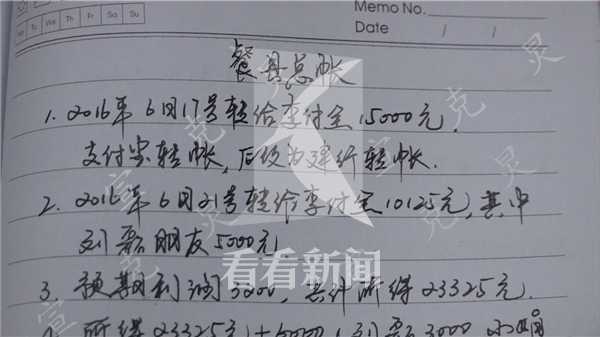 Memo No.
Mo Tu We Th Fr Sa Su
Date / /
餐具总帐
1. 2016年6月17号转给李付全15000元.
支付宝转帐, 后位为建行转帐.
2. 2016年6月21号转给李付全10125元, 其中
刘磊朋友5000元.
看看新闻
3. 预期利润3200, 共计所得23325元.
所得23325元+ 刘磊3000